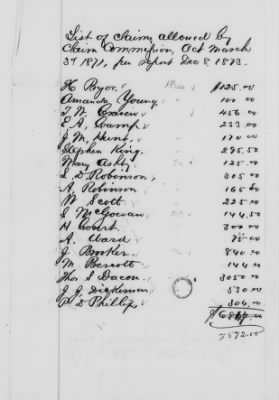 List of claims allowed by
Claim Commission, Act March
3d 1871, per report Dec 8 1873.
H Pryor, Miss $125.00
Amanda Young, 100 00
T. M. 456 00
E A, Camp, 233.00
J. M. Hunt, 170 00
Stephen King, 295.50
Mary Ashby 125.00
S D Robinson, 305 00
A. Robinson 165 00
W Scott 225.00
S McGowan 144.50
H Court 300 00
A. Ward 75 00
J Booker 840.00
M 144 00
Thos S Dacon, 3050.00
J. J. Dickinson 530.00
P D Phillip, 304.00
7572.50